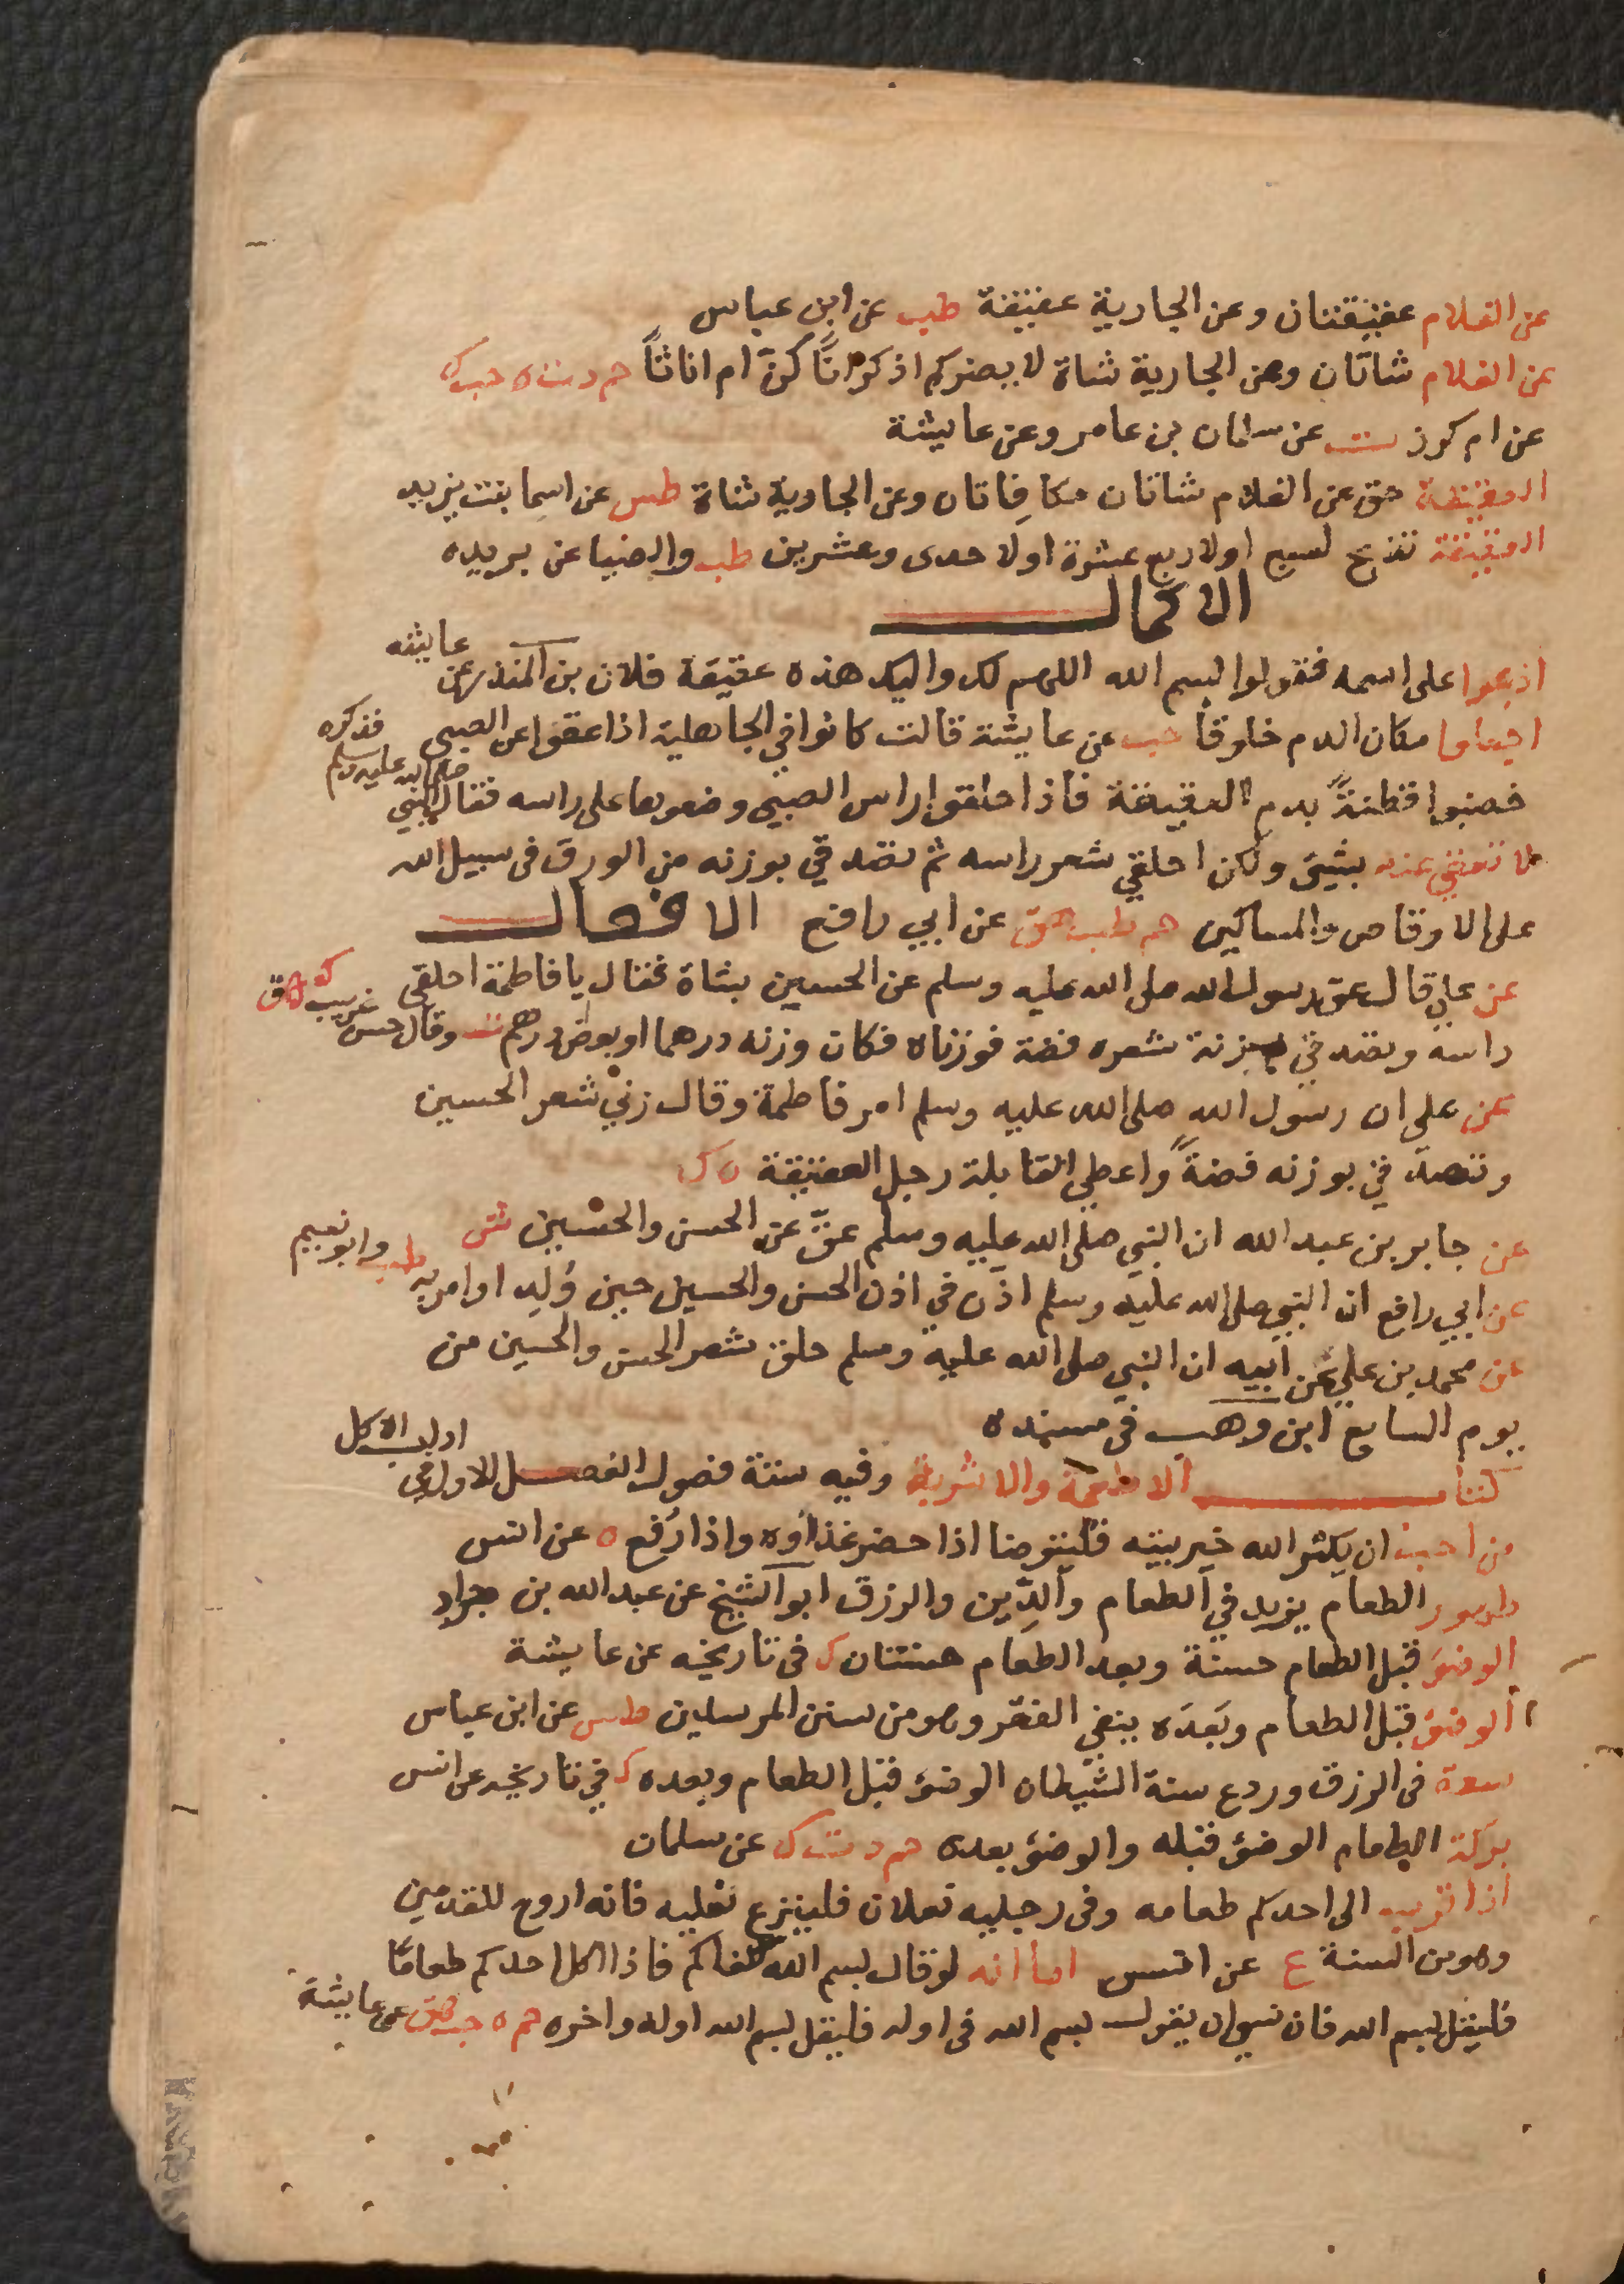 عن الغلام عقيقتان وعن الجارية عقيقة طب عن ابن عباس
عن الغلام شاتان وعن الجارية شاة لا يضركم اذكرانًا كنّ ام اناثًا حم د ت ن ه حب ك
عن ام كرز ت عن سلمان بن عامر وعن عايشة
العقيقة حق عن الغلام شاتان مكافاتان وعن الجارية شاة طس عن اسما بنت يزيد
العقيقة تذبح لسبع اولاربع عشرة اولاحدى وعشرين طب والضيا عن بريده
الاكمال
اذبحوا على اسمه فقولوا بسم الله اللهم لك واليك هذه عقيقة فلان بن المنذر عن عايشه
اجعلوا مكان الدم خلوقا حب عن عايشة قالت كانوا في الجاهلية اذا عقوا عن الصبي
خضبوا قطنةً بدم العقيقة فاذا حلقوا راس الصبي وضعوها على راسه فقال النبي صلى الله عليه وسلم فذكره
لا تعقي عنه بشيئ ولكن احلقي شعر راسه ثم تصدقي بوزنه من الورق في سبيل الله
على الاوقاص والمساكين حم طب هق عن ابي رافع الافعال
عن علي قال عق رسول الله صلى الله عليه وسلم عن الحسين بشاة فقال يا فاطمة احلقي
راسه وتصدقي بزنة شعره فضة فوزناه فكان وزنه درهما او بعض درهم ت وقال حسن غريب ك هق
عن علي ان رسول الله صلى الله عليه وسلم امر فاطمة وقال زني شعر الحسين
وتصدقي بوزنه فضةً واعطي القابلة رجل العقيقة ك
عن جابر بن عبد الله ان النبي صلى الله عليه وسلم عقّ عن الحسن والحسين ش
عن ابي رافع ان النبي صلى الله عليه وسلم اذّن في اذن الحسن والحسين حين وُلِد اوامر به طب وابو نعيم
عن محمد بن علي عن ابيه ان النبي صلى الله عليه وسلم حلق شعر الحسن والحسين من
يوم السابع ابن وهب في مسنده
كتاب الاطعمة والاشربة وفيه ستة فصول الفصل الاول في ادب الاكل
من احب ان يكثر الله خير بيته فليتوضا اذا حضر غذاؤه واذا رُفع ه عن انس
الطعام يزيد في الطعام والدّين والرزق ابو الشيخ عن عبد الله بن جراد
الوضؤ قبل الطعام حسنة وبعد الطعام حسنتان ك في تاريخه عن عايشة
الوضؤ قبل الطعام وبَعدَه ينفي الفقر وهو من سنن المرسلين طس عن ابن عباس
سعة في الرزق وردع سنة الشيطان الوضؤ قبل الطعام وبعده ك في تاريخه عن انس
بركة الطعام الوضؤ قبله والوضؤ بعده حم د ت ك عن سلمان
اذا قرب الى احدكم طعامه وفي رجليه نعلان فلينزع نعليه فانه اروح للقدمين
وهو من السنة ع عن انس اما انه لو قال بسم الله لكفاكم فاذا اكل احدكم طعامًا
فليقل بسم الله فان نسي ان يقول بسم الله في اوله فليقل بسم الله اوله واخره حم ه حب هق عن عايشة